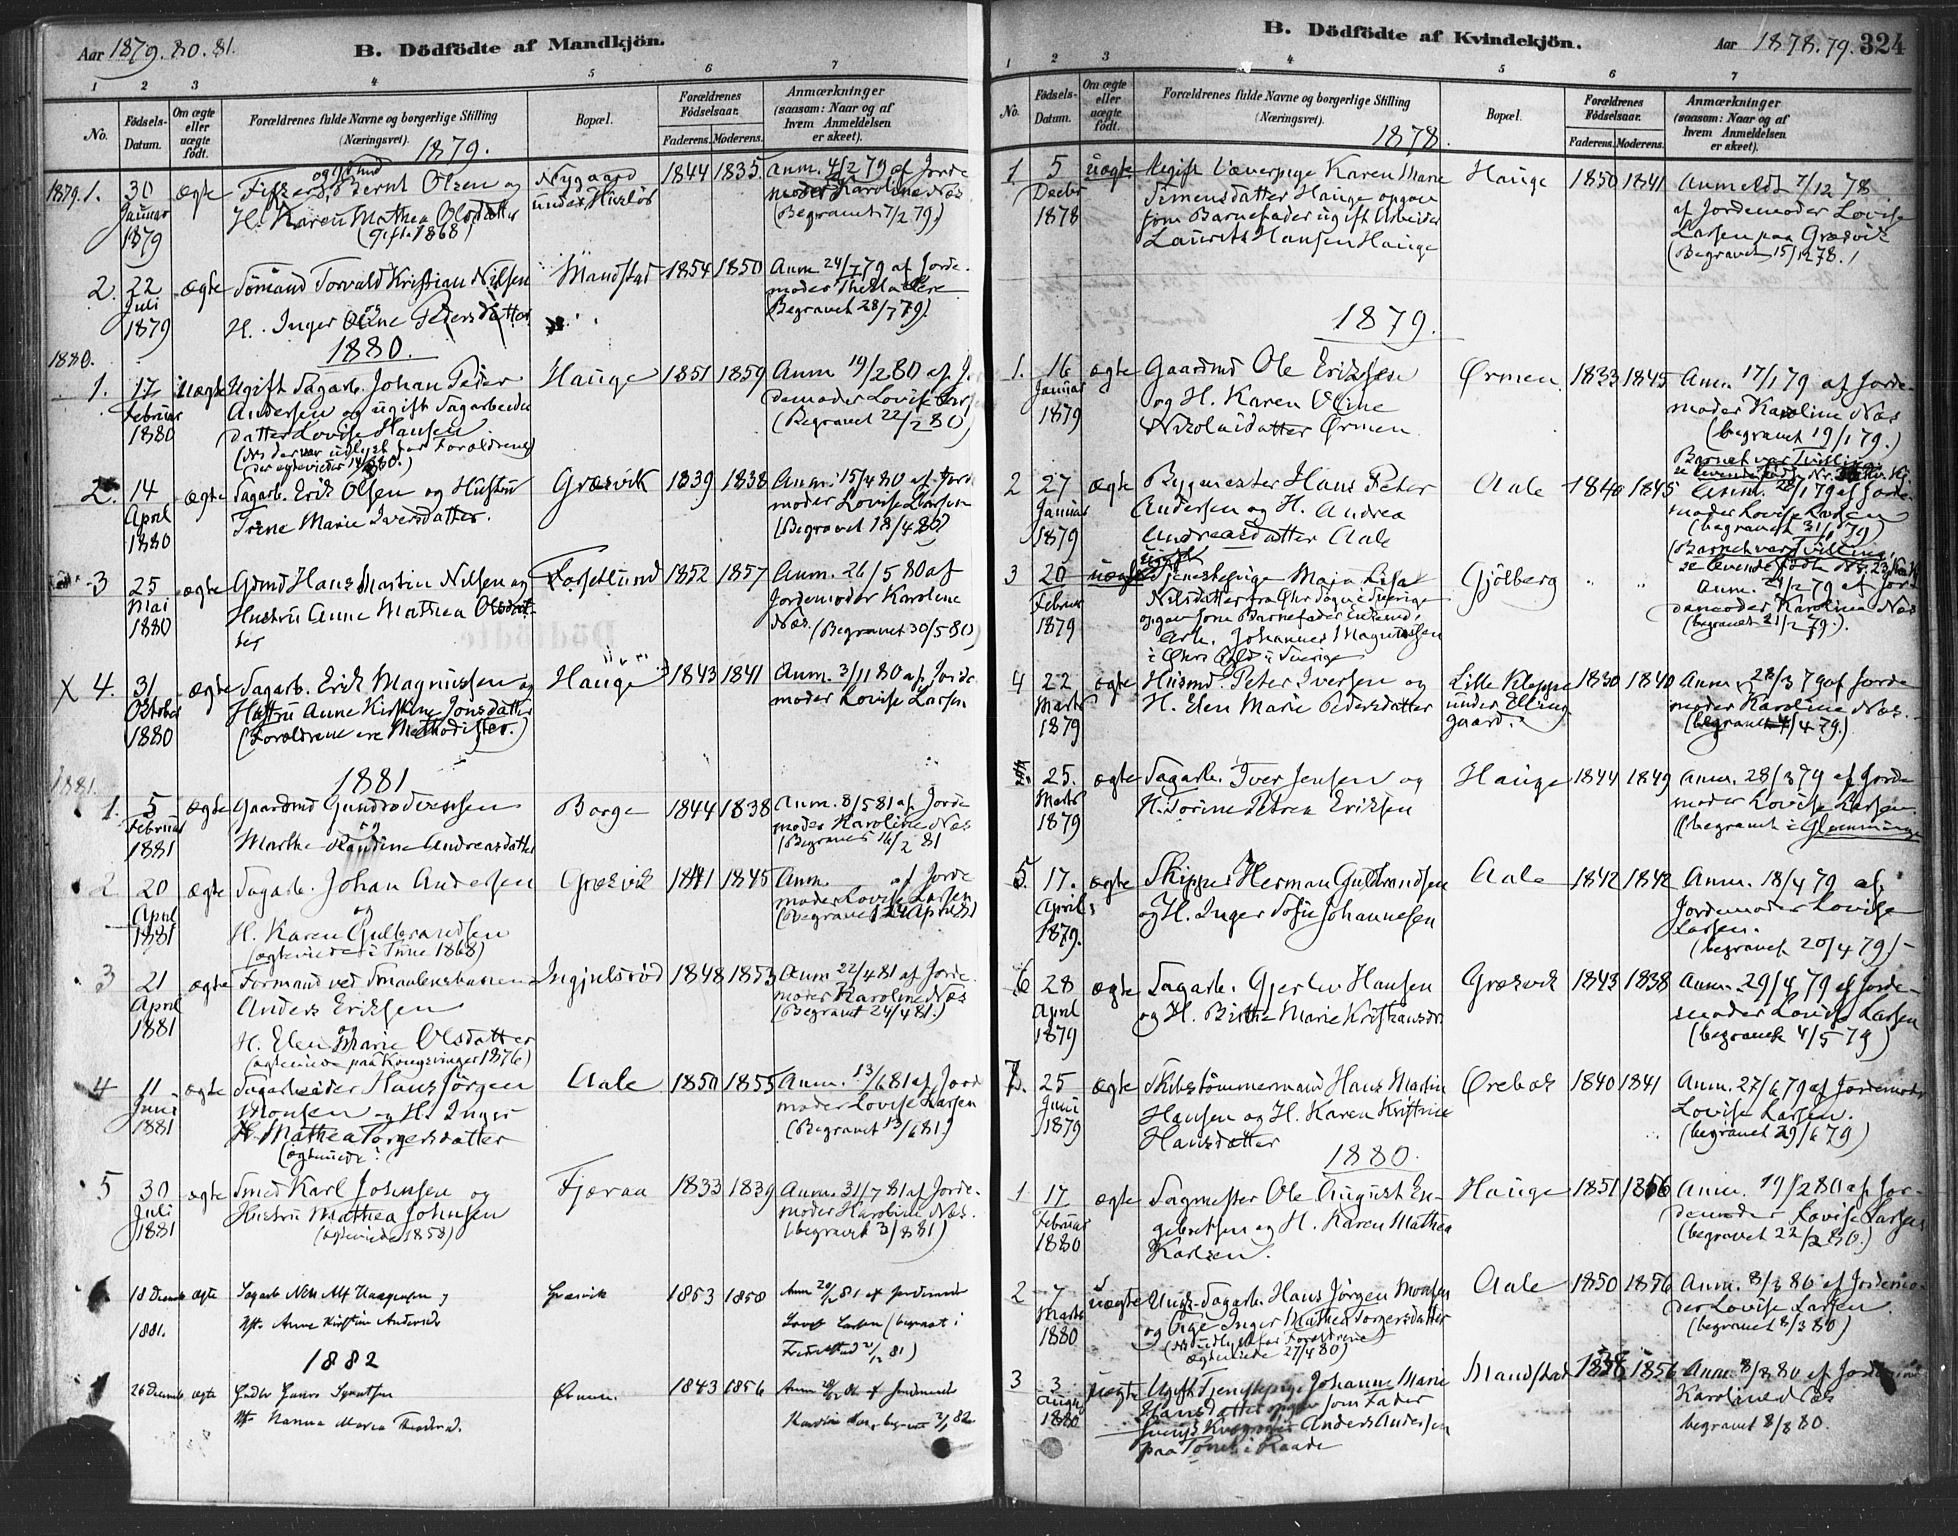 Aar 1879. 80. 81.
B. Dödfödte af Mandkjön.
1 2 3 4 5 6 7
No.
Födsels-Datum.
Om ægte eller uægte födt.
Forældrenes fulde Navne og borgerlige Stilling (Næringsvei).
Bopæl.
Forældrenes Födselsaar.
Faderens. Moderens.
Anmærkninger (saasom: Naar og af hvem Anmeldelsen er skeet).
1879.
1879. 1. 30 ægte Bernt Olsen og Nygaard 1844 1835 Anm. 4/2 79 af Jorde
Januar H. Karen Mathea Olsdatter under moder Karoline Næs
1879 (gift 1868) (Begravet 7/2 79)
2. 22 ægte Sömand Torvald Kristian Nilsen Mandstad 1854 1850 Anm. 24/7 79 af Jorde-
Juli og moder
1879 H. Inger Oline Pedersdatter Begravet 28/7 79.)
1880.
1880.
1. 17 uægte Ugift Sagarb. Johan Peder Hauge 1851 1859 Anm 19/2 80 af Jor
Februar Andersen og ugift Sagarbeider demoder Lovise
1880 datter Lovise Hansen (Begravet 22/2 80)
2. 14 ægte Sagarb. Erik Olsen og Hustru Græsvik 1839 1838 Anm. 15/4 80 af Jorde
April Trine Marie Iversdatter. moder Lovise Larsen
1880 (Begravet 18/4 80)
3 25 ægte Grmd Hans Martin Nilsen og Forsetlund 1852 1857 Anm. 26/5 80 af
Mai Hustru Anne Mathea Olsdat- Jordemoder Karoline
1880 ter Næs. (Begravet 30/5 80)
X 4. 31 ægte Sagarb. Erik Magnussen og Hauge 1843 1841 Anm. 3/11 80 af Jorde
Oktober Hustru Anne Kirstine Jonsdatter moder Lovise Larsen
1880 (Forældrene ere Methodister.)
1881.
1881
1. 5 ægte Gaardmd Borge 1844 1838 Anm. 8/5 81 af Jorde
Februar og moder Karoline Næs
1881 Marthe Andreasdatter (Begravet 16/2 81
2 20 ægte Sagarb. Johan Andersen Græsvik 1841 1845 Anm. af Jorde
April og moder Lovise Larsen
1881 H. Karen Gulbrandsen (begravet 24 April 81)
(ægteviede i Tune 1868)
3 21 ægte Formand ved Smaalensbanen Ingjelsröd 1848 1853 Anm. 22/4 81 af Jorde
April Anders Eriksen moder Karoline Næs
1881 og (Begravet 24/4 81.)
H. Elen Marie Olsdatter
(ægteviede paa Kongsvinger 1876)
4 11 ægte Sagarbeider Hans Jörgen Aale 1850 1855 Anm. 13/6 81 af Jord
Juni Monsen og H. Inger moder Lovise Larsen
1881 Mathea Torgersdatter (Begravet 13/6 81)
(ægteviede
5 30 ægte Smed Karl Johnsen og Fjæraa 1833 1839 Anm. 31/7 81 af Jorde-
Juli Hustru Mathea Johnsen moder Karoline Næs.
1881 (ægteviede 1858) (begravet 3/8 81)
18 Decemb ægte Sagarb Nils Alf og Græsvik 1853 1858 Anm 20/12 81 af Jordemoder
1881. Hst. Anne Kirstin Andersd Lovise Larsen (begravet i
Fredrikstad /12 81)
1882
26 Decemb ægte Ørmen. 1843 1856 Anm af Jordemoder
Hst. Hanna Maria begravet 2/1 82

B. Dödfödte af Kvindekjön.
Aar 1878. 79. 324
1 2 3 4 5 6 7
No.
Födsels-Datum.
Om ægte eller uægte födt.
Forældrenes fulde Navne og borgerlige Stilling (Næringsvei).
Bopæl.
Forældrenes Födselsaar.
Faderens. Moderens.
Anmærkninger (saasom: Naar og af hvem Anmeldelsen er skeet).
1878.
1 5 uægte Ugift Væverpige Karen Marie Hauge 1850 1841 Anmeldt 7/12 78
Decbr Simensdatter Hauge opgav af Jordemoder Lovise
1878 som Barnefader ugift Arbeider Larsen paa Græsvik
Laurits Hansen Hauge (Begravet 15/12 78.)
1879.
1. 16 ægte Gaardmd Ole Eriksen Ørmen 1833 1845 Anm. 17/1 79 af Jorde-
Januar og H. Karen Oline moder Karoline Næs
1879 Nikolaidatter Ørmen. (begravet 19/1 79.)
Barnet var Tvilling
2 27 ægte Bygmester Hans Peter Aale 1840 1845 Anm. 28/1 79 af Jorde-
Januar Andersen og H. Andrea moder Lovise Larsen
1879 Andreasdatter Aale (begravet 31/1 79)
(Barnet var Tvilling,
3 20 uægte ugift Tjenestepige Maja Lisa Gjölberg " " Anm. 21/2 79 af Jor
Februar Nilsdatter fra i Sverige demoder Karoline Næs
1879 opgav som Barnefader (begravet 21/2 79.)
Arb. Johannes Magnussen
i Sverige
4 22 ægte Husmd. Peter Iversen og Lille Kleppe 1830 1840 Anm. 28/3 79 af Jorde
Marts H. Elen Marie Pedersdatter under Elling- moder Karoline Næs.
1879 gaard. (begravet 4/4 79.)
25. ægte Sagarb. Iver Jensen og Hauge 1844 1849 Anm. 28/3 79 af Jorde
Marts H. Torine Petrea Eriksen moder Lovise Larsen
1879 (begravet i Glemminge
5. 17. ægte Skipper Herman Gulbrandsen Aale 1842 1842 Anm. 18/4 79 af
April og H. Inger Sofie Johannesen Jordemoder Lovise
1879. Larsen.
(begravet 20/4 79)
6 28 ægte Sagarb. Gjerlev Hansen Græsvik 1843 1838 Anm. 29/4 79 af Jorde-
April og H. Birthe Marie Kristiansdr. moder Lovise Larsen
1879 (begravet 4/5 79)
7. 25 ægte Skibstömmermand Hans Martin Ørebæk 1840 1841 Anm. 27/6 79 af Jordemoder
Juni Hansen og H. Karen Kristine Lovise Larsen.
1879 Hansdatter (begravet 29/6 79)
1880.
1 17 ægte Sagmester Ole August En- Hauge 1851 1856 Anm. 19/2 80 af Jor-
Februar gebretsen og H. Karen Mathea demoder Lovise Larsen
1880 Karlsen. (begravet 22/2 80.)
2 7 uægte Sagarb. Hans Jörgen Monsen Aale 1850 1856 Anm. 8/3 80 af Jordemo-
Marts og Pige Inger Mathea Torgersdatter der Lovise Larsen.
1880 (begravet 8/3 80)
ægteviede 27/4 80)
3 3 uægte Ugift Tjenestepige Johanne Marie Mandstad 1858 1856 Anm. 8/8 80 af Jordemod
August Hansdatter opgav som Fader Karoline Næs
1880 Anders Andersen begravet 8/8 80.
paa i Raade